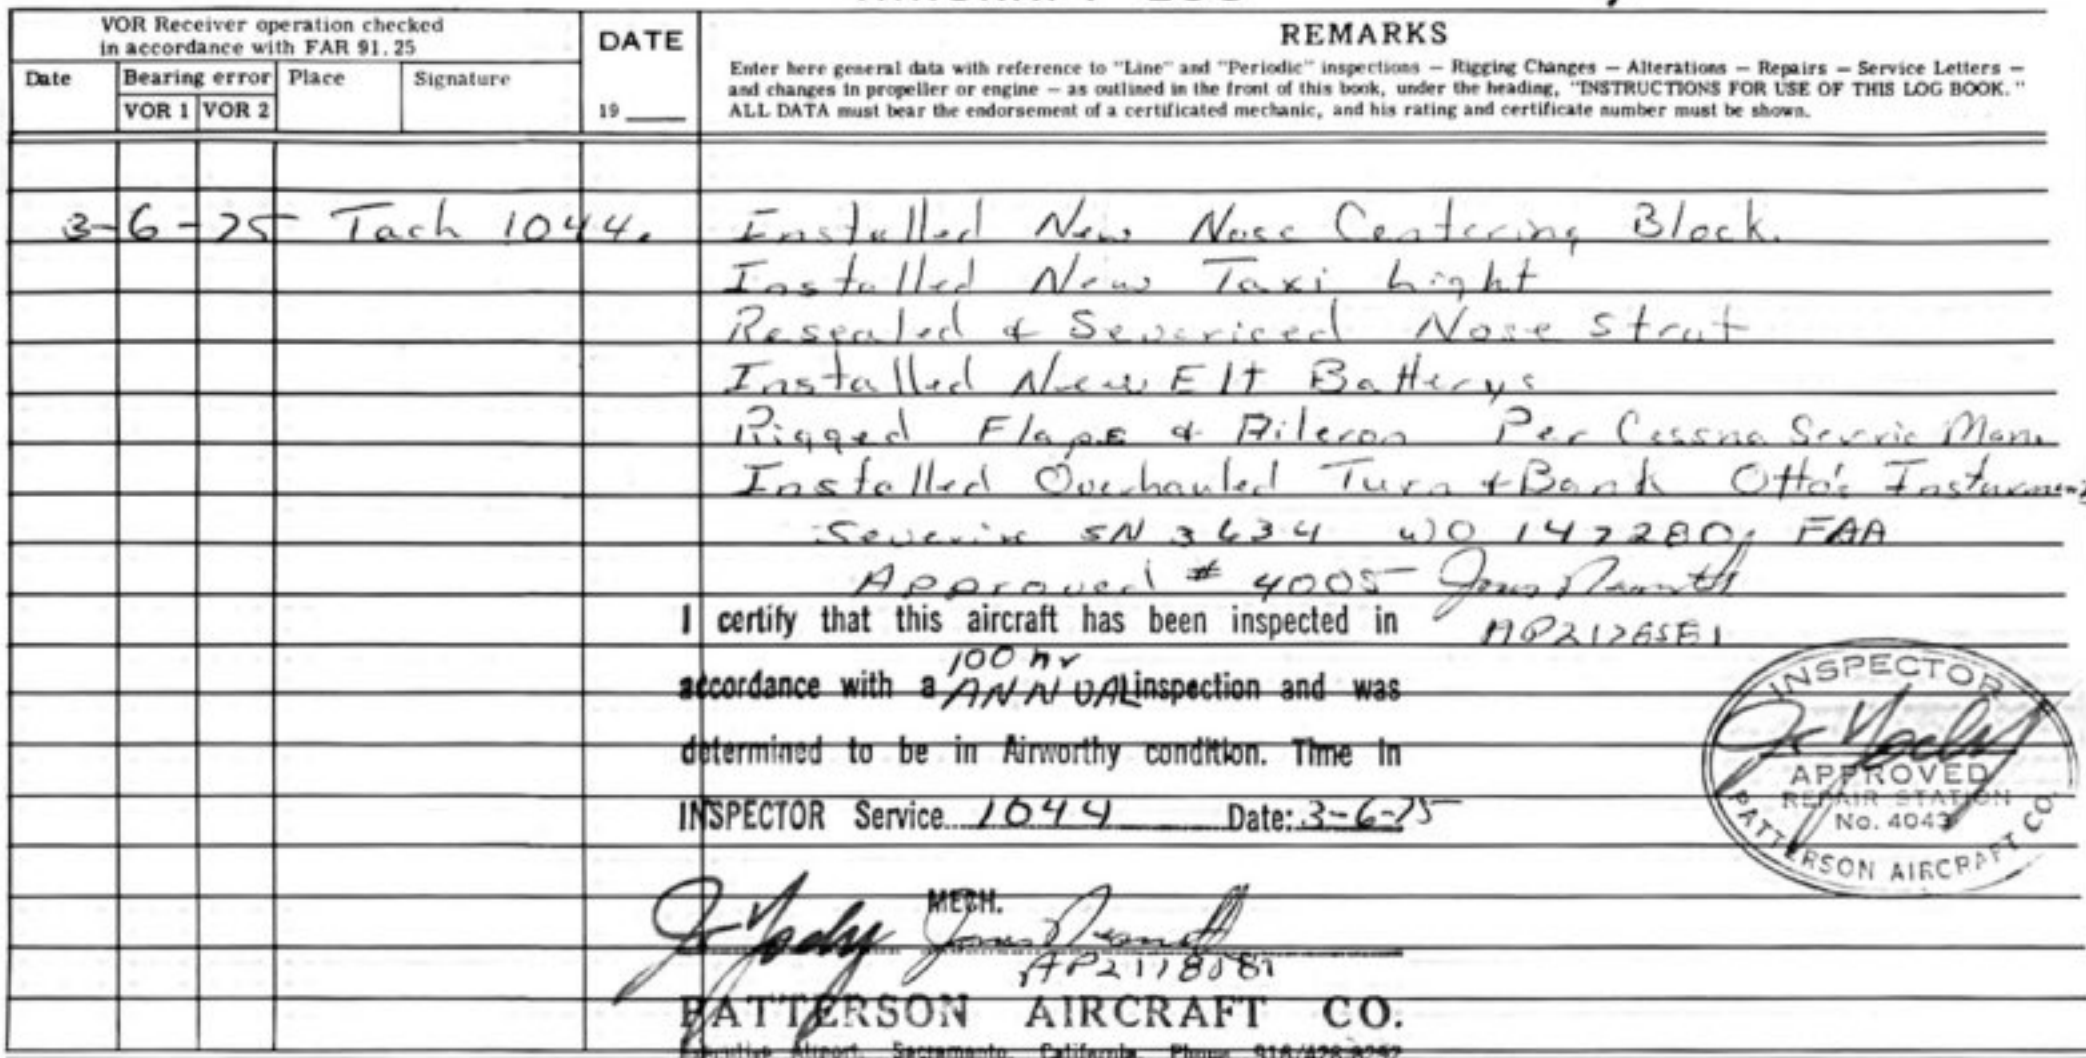 VOR Receiver operation checked
in accordance with FAR 91.25
DATE
REMARKS
Date
Bearing error
Place
Signature
VOR 1
VOR 2
19
Enter here general data with reference to "Line" and "Periodic" inspections — Rigging Changes — Alterations — Repairs — Service Letters —
and changes in propeller or engine — as outlined in the front of this book, under the heading, "INSTRUCTIONS FOR USE OF THIS LOG BOOK."
ALL DATA must bear the endorsement of a certificated mechanic, and his rating and certificate number must be shown.
3-6-75 Tach 1044. Installed New Nose Centering Block.
Installed New Taxi Light
Resealed & Severiced Nose Strut
Installed New Elt Batterys
Rigged Flaps & Aileron Per Cessna Servic Man.
Installed Overhauled Turn & Bank Otto's
SN 3634 WO 147280, FAA
Approved # 4005
I certify that this aircraft has been inspected in
100 hr
accordance with a ANNUAL inspection and was
determined to be in Airworthy condition. Time in
INSPECTOR Service 1044 Date: 3-6-75
INSPECTOR
APPROVED
REPAIR STATION
No. 4043
PATTERSON AIRCRAFT CO.
MECH.
PATTERSON AIRCRAFT CO.
Executive Airport, Sacramento, California, Phone 916/428-8292